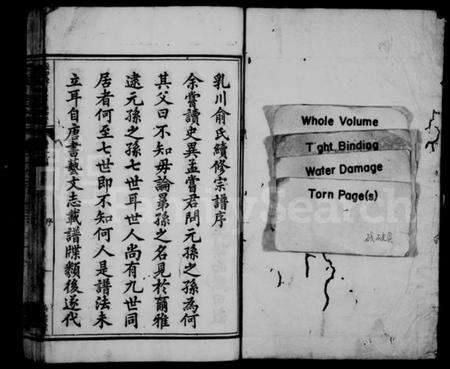 乳川俞氏續修宗譜序
余嘗讀史異孟嘗君問元孫之孫為何
其父曰不知毋論晜孫之名見於爾雅
逮元孫之孫七世耳世人尚有九世同
居者何至七世即不知何人是譜法未
立耳自唐書藝文志載譜牒類後遂代
序
Whole Volume
Tight Binding
Water Damage
Torn Page(s)
FamilySearch